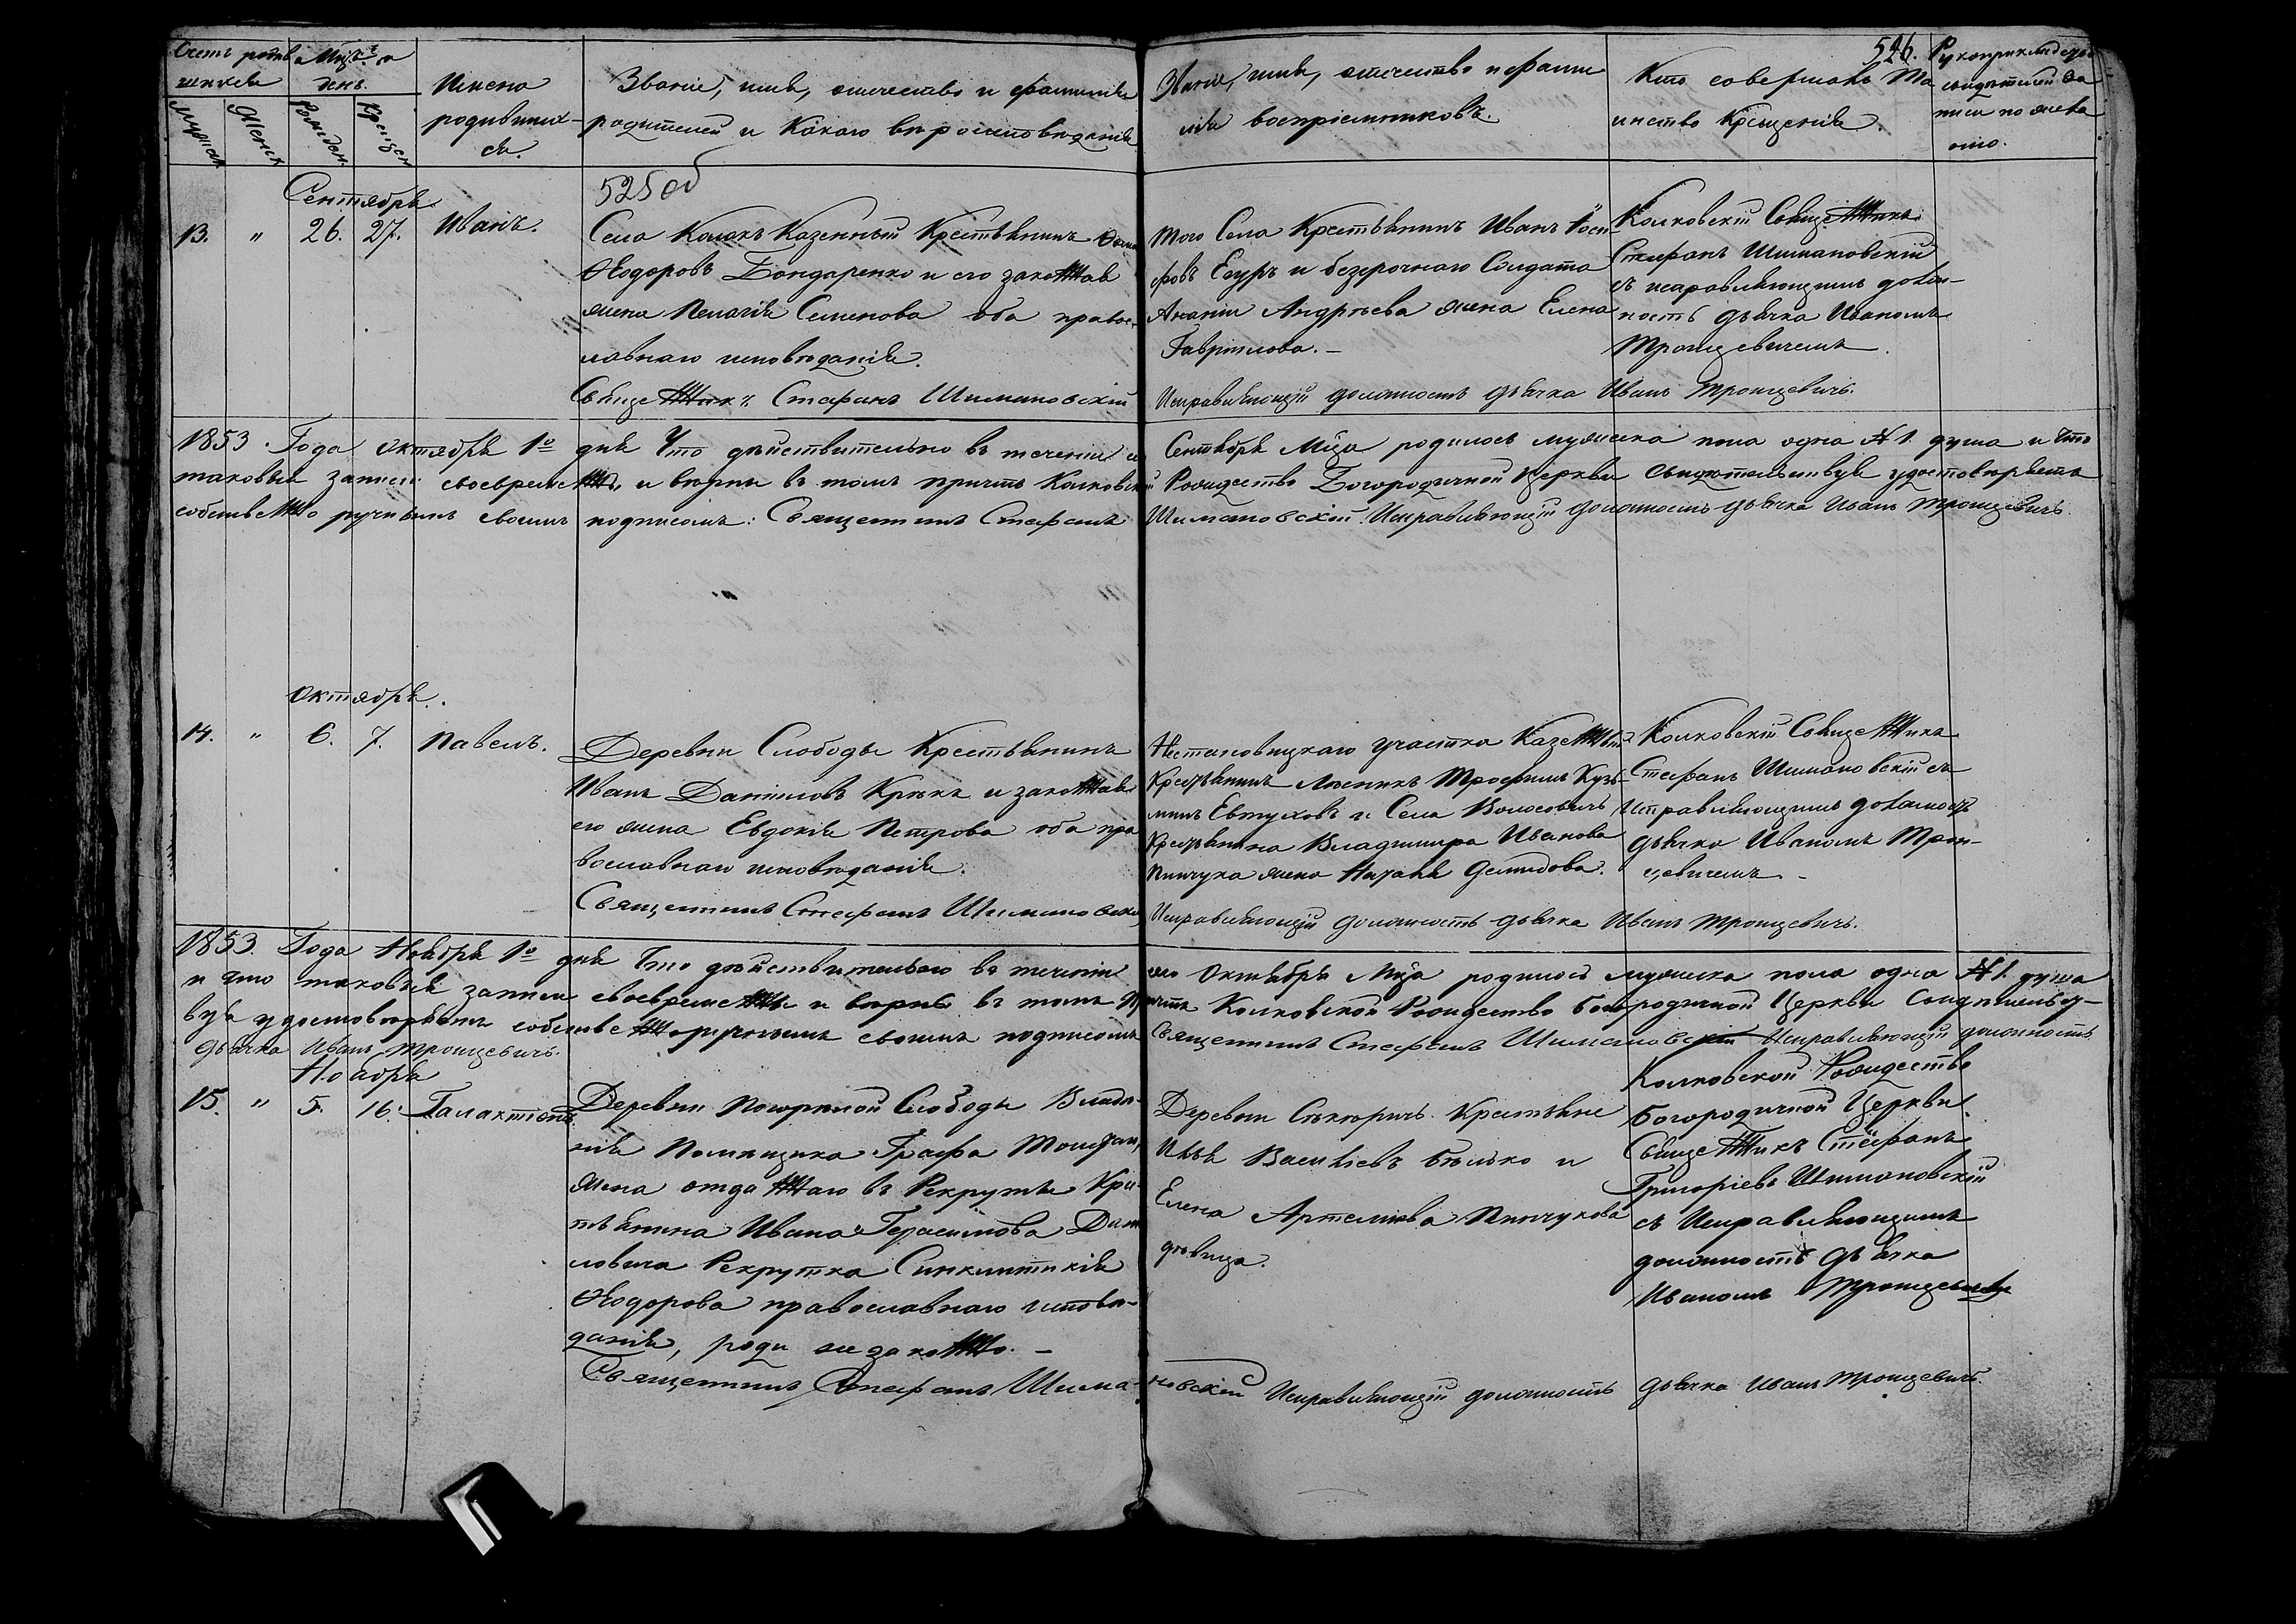 526.
Счетъ родив
шихся
Мѣсц. и
день.
Мужеск
Женск
Рожден.
Крещен
Имена
родивших-
ся.
Званіе, имя, отечество и фамилія
родителей и какого вѣроисповѣданія
Званіе, имя, отечество и фами
лія воспріемниковъ.
Кто совершалъ Та
инство Крещенія.
Рукоприкладство
свидѣтелей за
писи по жела
нію.
525 об
Сентябрь
13. " 26. 27. Иванъ.
Села Колокъ Казенный Крестьянинъ
Ѳеодоровъ Бондаренко и его законная
жена Пелагія Семенова оба правос-
лавнаго исповѣданія.
Священникъ Стефанъ Шимановскій
Того Села Крестьянинъ Иванъ Іоси-
фовъ Есуръ и безсрочнаго Солдата
Ананіи Андреева жена Елена
Гавріилова. –
Исправляющій должность дьячка Иванъ Троицевичъ.
Колковскій Священникъ
Стефанъ Шимановскій
съ исправляющимъ долж-
ность дьячка Иваномъ
Троицевичемъ.
1853. Года Октября 1о дня Что дѣйствительно въ теченіи Сентября Мѣца родилось мужеска пола одна №1. душа и что
таковыя записи своевременны и вѣрны въ томъ причтъ Колковской Рождество Богородичной Церкви свидѣтельствуя удостовѣряетъ
собственноручнымъ своимъ подписомъ: Священникъ Стефанъ Шимановскій. Исправляющій должность дьячка Иванъ Троицевичъ.
Октябрь.
14. " 6. 7. Павелъ.
Деревни Слободы Крестьянинъ
Иванъ Даніиловъ Крукъ и законная
его жена Евдокія Петрова оба пра
вославнаго исповѣданія.
Священникъ Стефанъ Шимановскій
участка Казенный
Крестьянинъ Лѣсникъ Трофимъ Кузь-
минъ Евтуховъ и Села Волосовичъ
Крестьянина Владимира Иванова
Пинчука жена Демидова.
Исправляющій должность дьячка Иванъ Троицевичъ.
Колковскій Священникъ
Стефанъ Шимановскій съ
Исправляющимъ должность
дьячка Иваномъ Трои-
цевичемъ –
1853. Года Ноября 1о дня Что дѣйствительно въ теченіи Октября Мѣца родилось мужеска пола одна №1. душа
и что таковыя записи своевременны и вѣрны въ томъ Причтъ Колковской Рождество Богородичной Церкви Свидѣтельст-
вуя удостовѣряетъ собственноручнымъ своимъ подписомъ Священникъ Стефанъ Шимановскій Исправляющій должность
дьячка Иванъ Троицевичъ.
Ноябрь
15. " 5. 16. Галактіонъ
Деревни Слободы Владѣ-
нія Помѣщика Графа
жена отданнаго въ Рекруты Кре-
стьянина Ивана Герасимова
Рекрутка Синклитикія
Ѳеодорова православнаго исповѣ-
данія, роди незаконно. –
Священникъ Стефанъ Шима-
Деревни Крестьяне
Илья Васильевъ Бѣлько и
Елена Артеміева Пинчукова
дѣвица.
новскій Исправляющій должность дьячка Иванъ Троицевичъ.
Колковской Рождество
Богородичной Церкви
Священникъ Стефанъ
Григоріевъ Шимановскій
съ Исправляющимъ
должность дьячка
Иваномъ Троицевичемъ